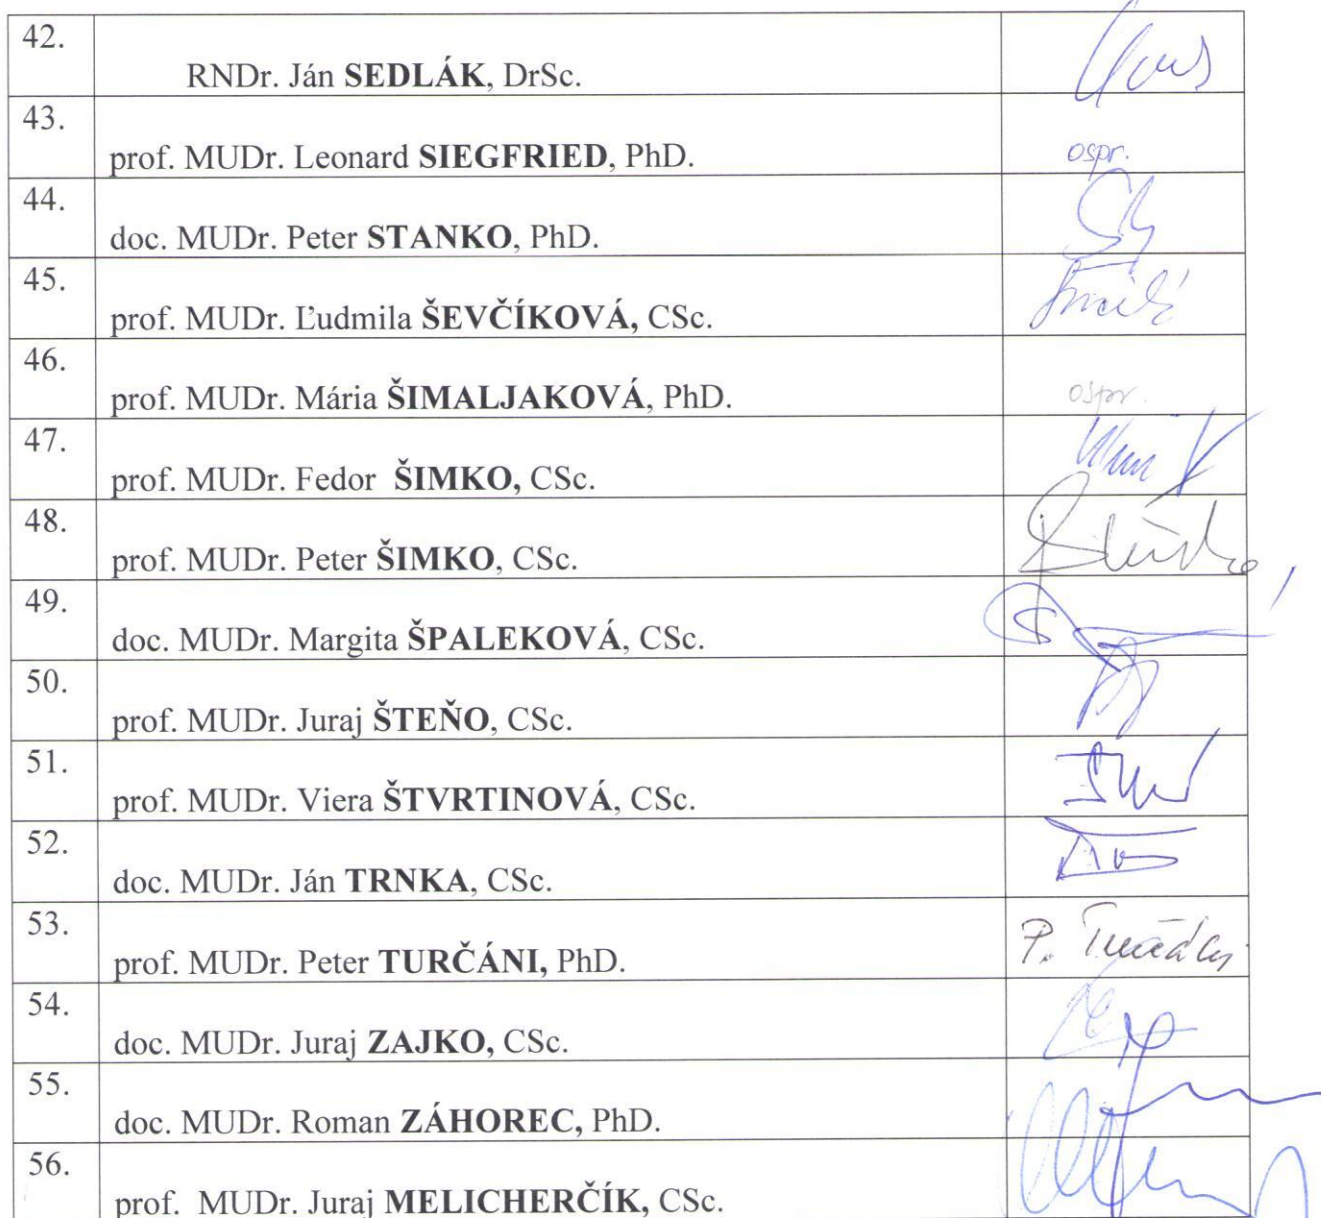 42.
RNDr. Ján SEDLÁK, DrSc.
43.
prof. MUDr. Leonard SIEGFRIED, PhD. ospr.
44.
doc. MUDr. Peter STANKO, PhD.
45.
prof. MUDr. Ľudmila ŠEVČÍKOVÁ, CSc.
46.
prof. MUDr. Mária ŠIMALJAKOVÁ, PhD. ospr.
47.
prof. MUDr. Fedor ŠIMKO, CSc.
48.
prof. MUDr. Peter ŠIMKO, CSc.
49.
doc. MUDr. Margita ŠPALEKOVÁ, CSc.
50.
prof. MUDr. Juraj ŠTEŇO, CSc.
51.
prof. MUDr. Viera ŠTVRTINOVÁ, CSc.
52.
doc. MUDr. Ján TRNKA, CSc.
53.
prof. MUDr. Peter TURČÁNI, PhD. P.
54.
doc. MUDr. Juraj ZAJKO, CSc.
55.
doc. MUDr. Roman ZÁHOREC, PhD.
56.
prof. MUDr. Juraj MELICHERČÍK, CSc.